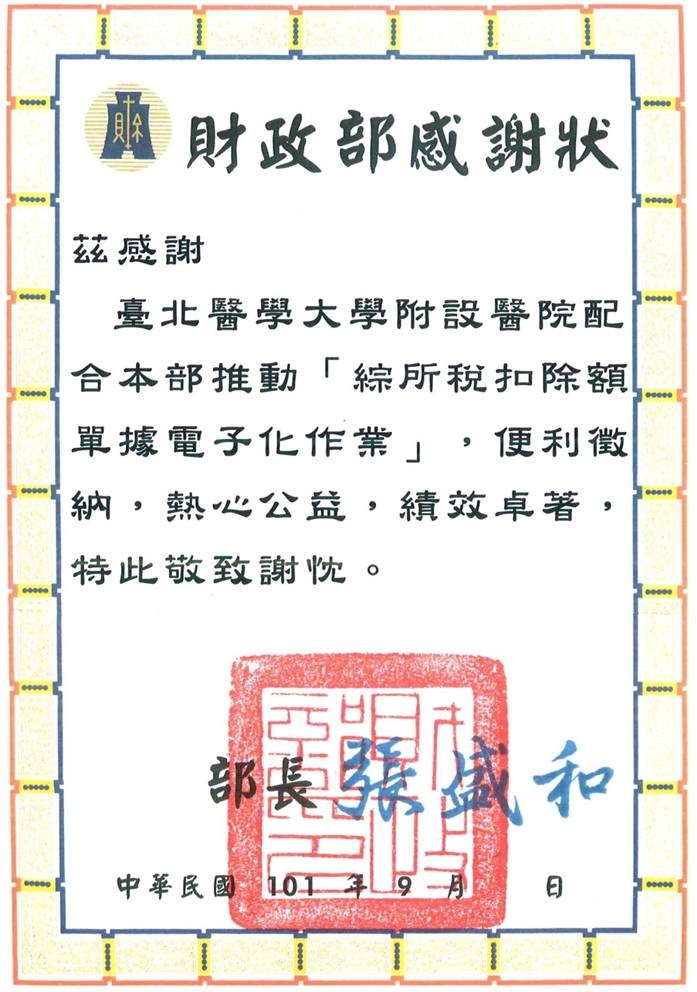 財政部感謝狀
茲感謝
臺北醫學大學附設醫院配
合本部推動「綜所稅扣除額
單據電子化作業」，便利徵
納，熱心公益，績效卓著，
特此敬致謝忱。
部長 張盛和
中華民國 101 年 9 月 日